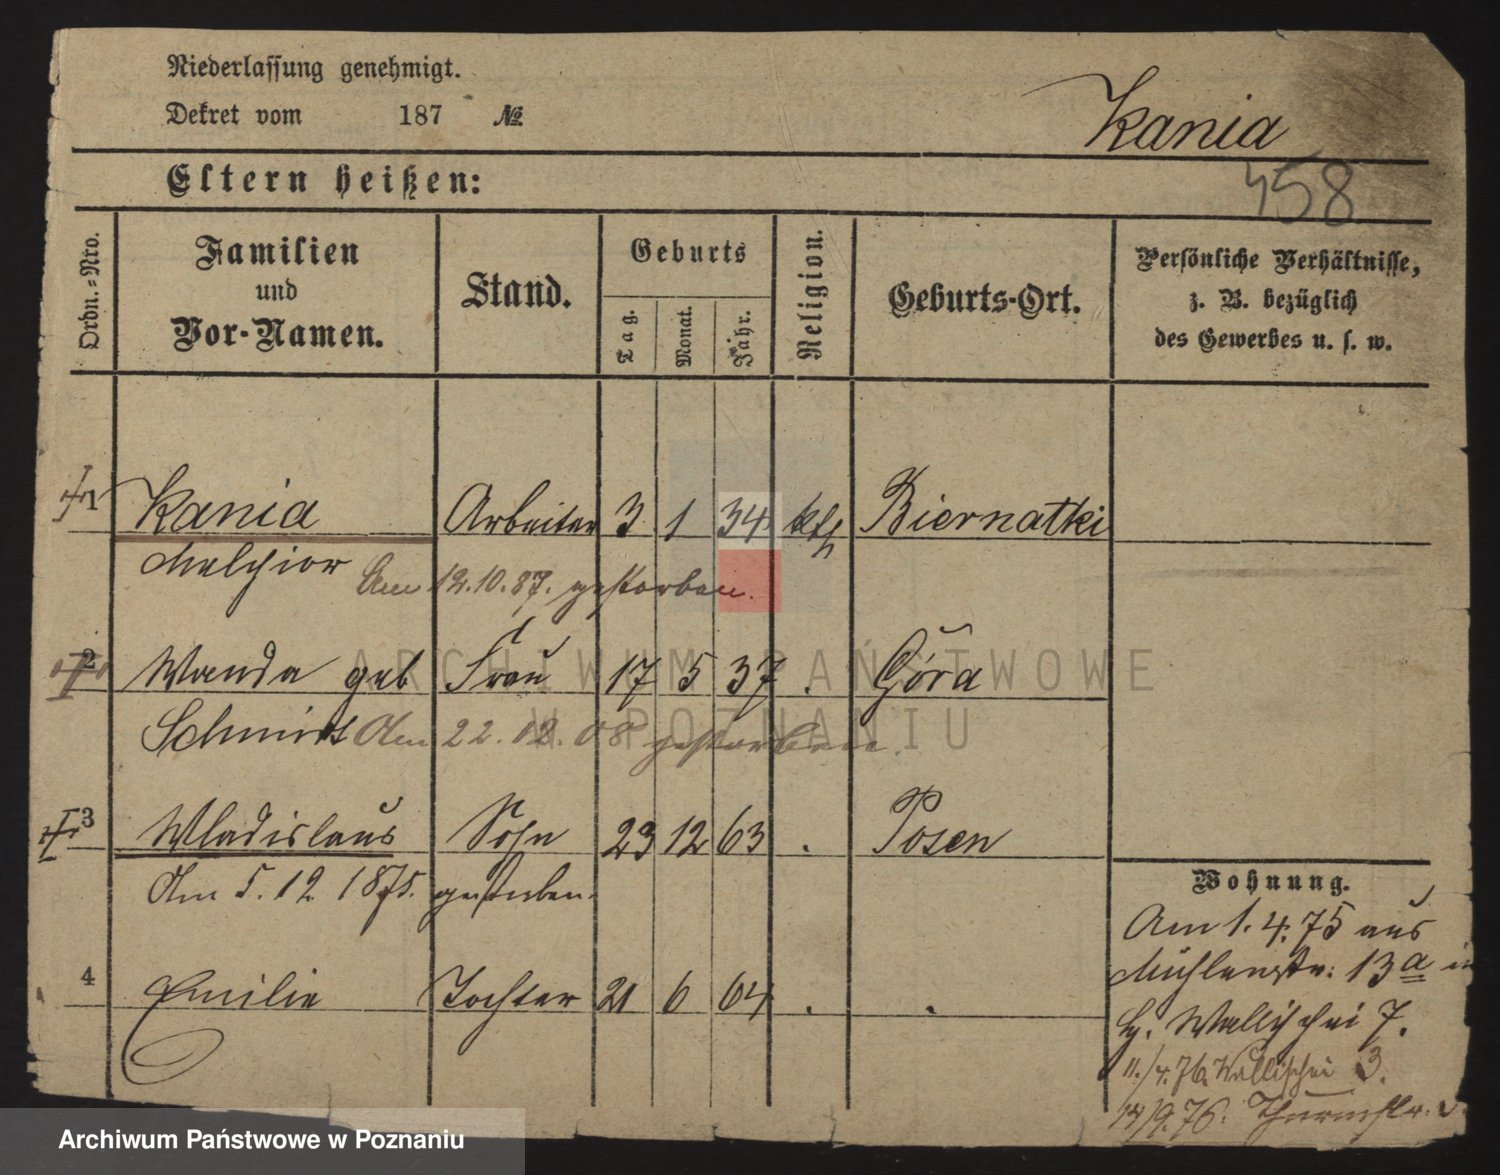 Niederlassung genehmigt.
Dekret vom 187 №
Kania
458
Eltern heißen:
Ordn.-Nro.
Familien
und
Vor-Namen.
Stand.
Geburts
Tag.
Monat.
Jahr.
Religion.
Geburts-Ort.
Persönliche Verhältnisse,
z. B. bezüglich
des Gewerbes u. s. w.
1 Kania Arbeiter 3 1 34 kth Biernatki
Melchior Am 12.10.87. gestorben.
2 Wanda geb Frau 17 5 37 . Góra
Schmidt Am 22.12.08 gestorben.
3 Wladislaus Sohn 23 12 63 . Posen
Am 5.12 1875. gestorben.
4 Emilie Tochter 21 6 64 . .
Wohnung.
Am 1.4.75 aus
Mühlenstr: 13a in
Wallischei 7.
11./4.76. Wallischei 3.
14/9.76. Thurmstr.
ARCHIWUM PAŃSTWOWE
W POZNANIU
Archiwum Państwowe w Poznaniu